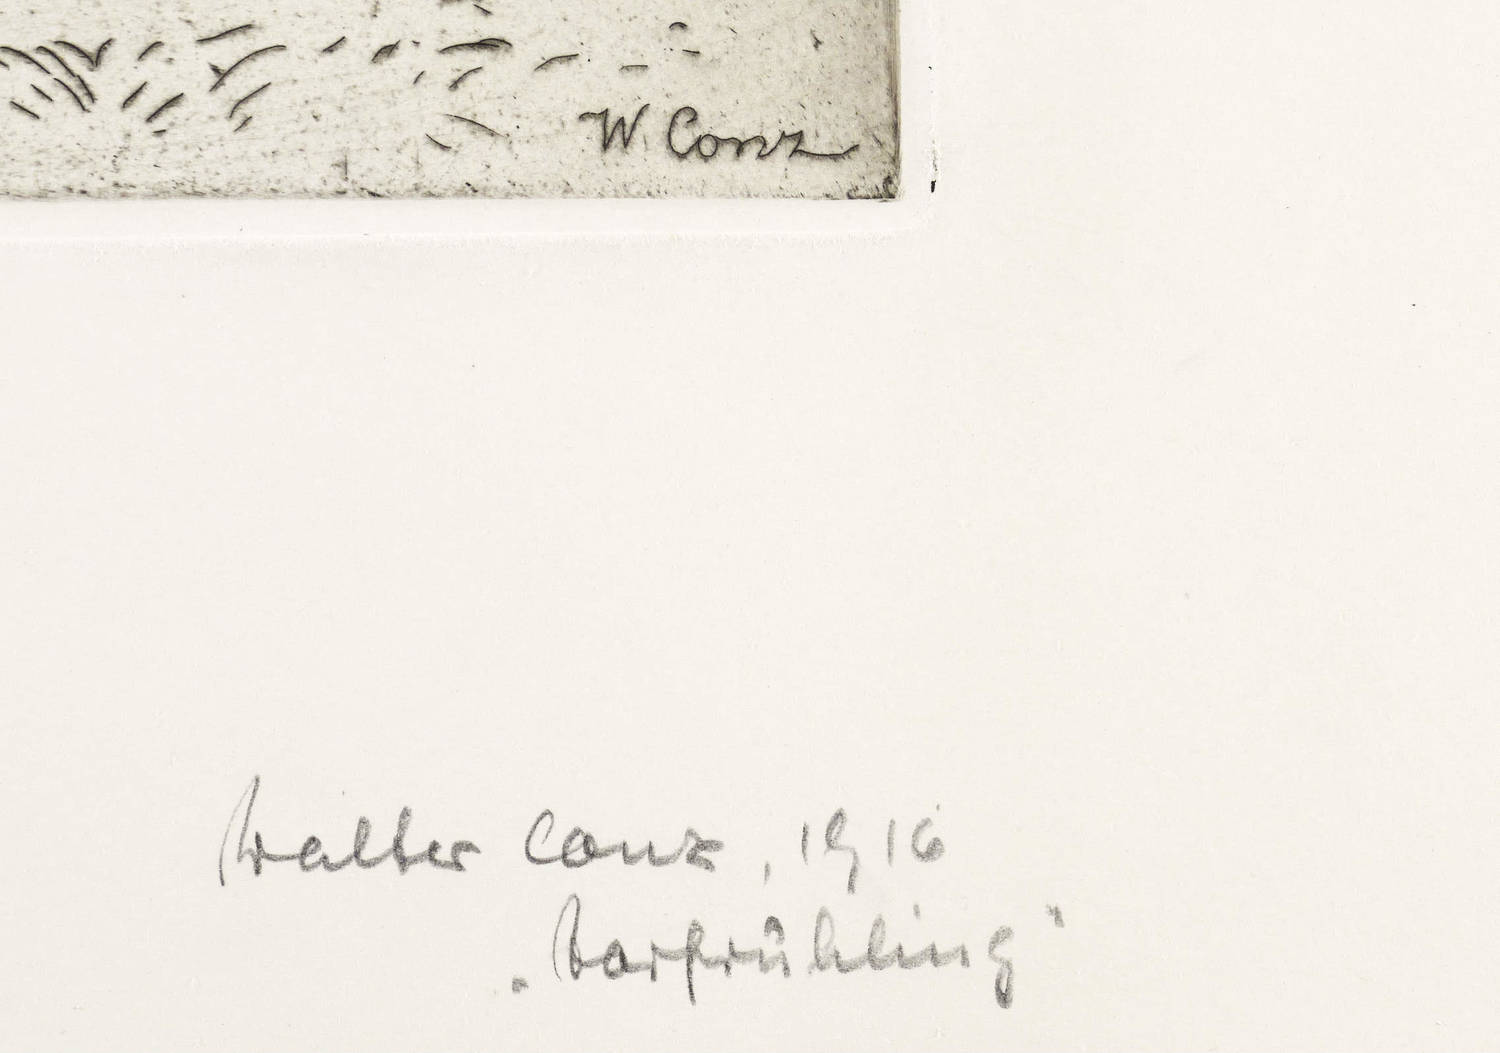 W. Conz
Walter Conz, 1916
„Vorfrühling"